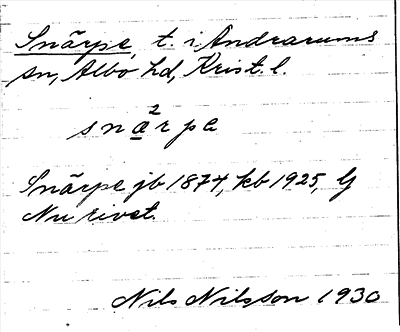 Snärpe, t. i Andrarums
sn, Albo hd, Krist. l.
2
snarpe
Snärpe jb 1874, kb 1925, G
Nu rivet.
Nils Nilsson 1930